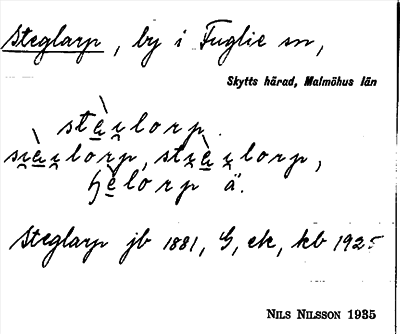 Steglarp, by i Fuglie sn,
Skytts härad, Malmöhus län
stὲi̯lorp.
si̯ὲi̯lorp, sti̯ὲi̯lorp,
ä.
Steglarp jb 1881, G, ek, kb 1925
NILS NILSSON 1935